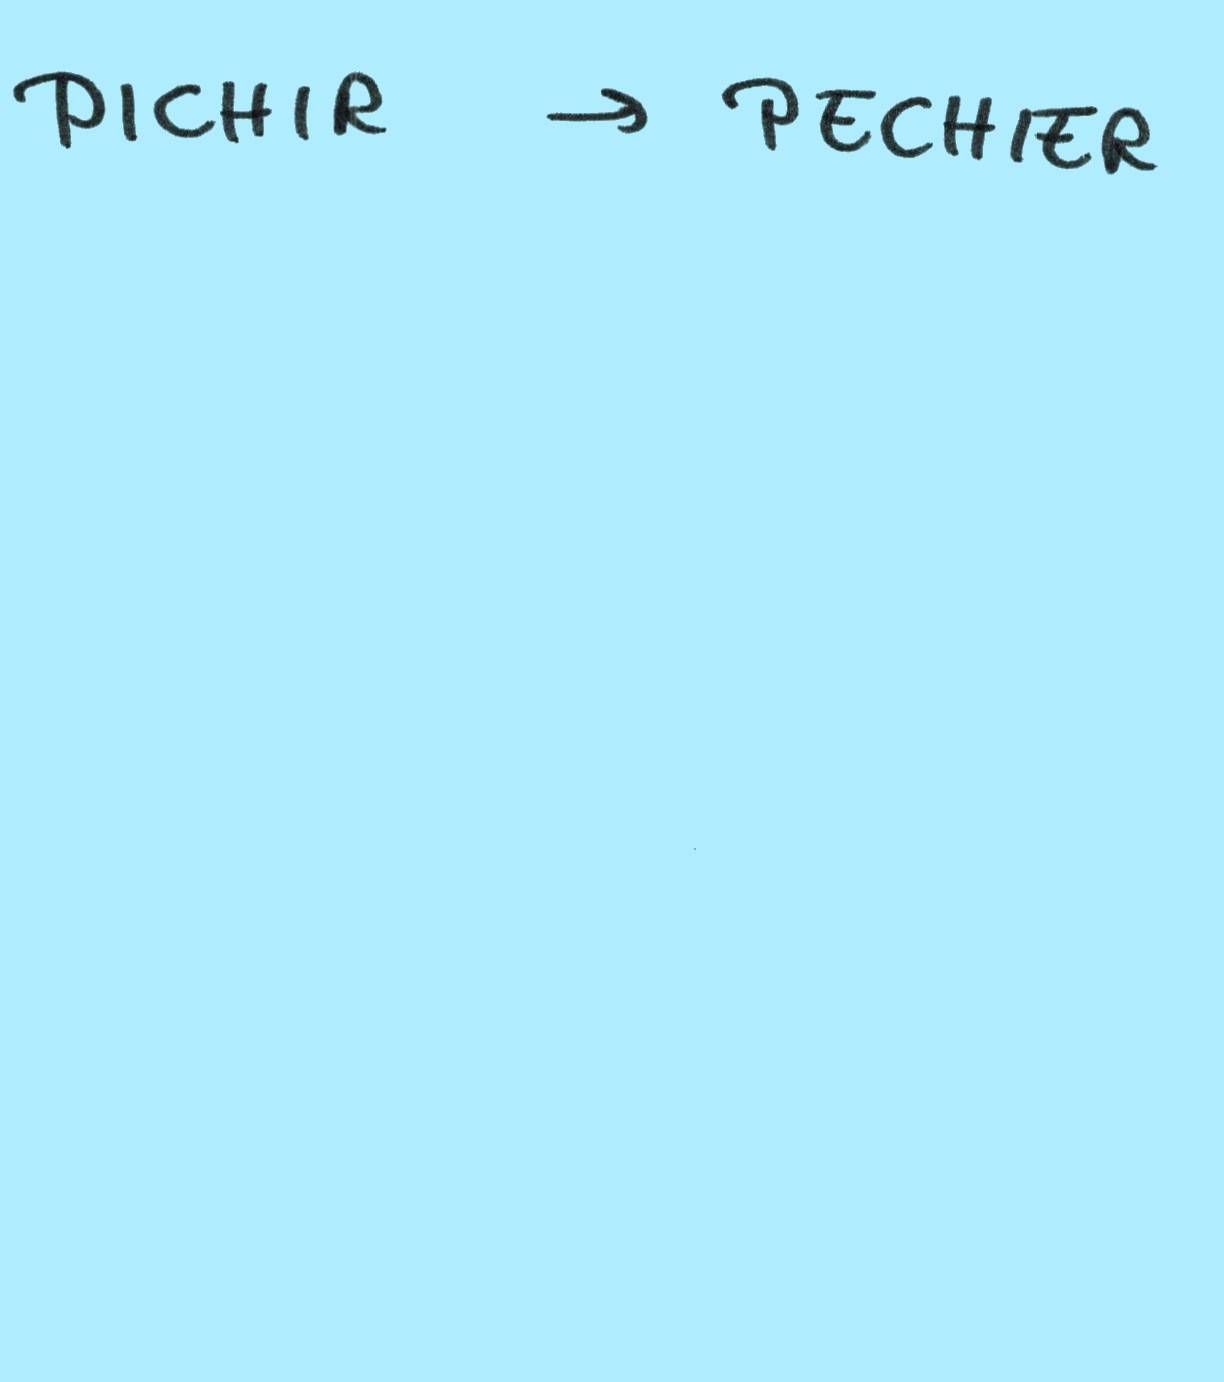 PICHIR → PECHIER